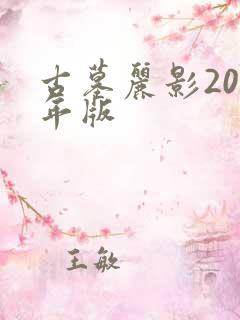 古墓麗影20
年版
王敏